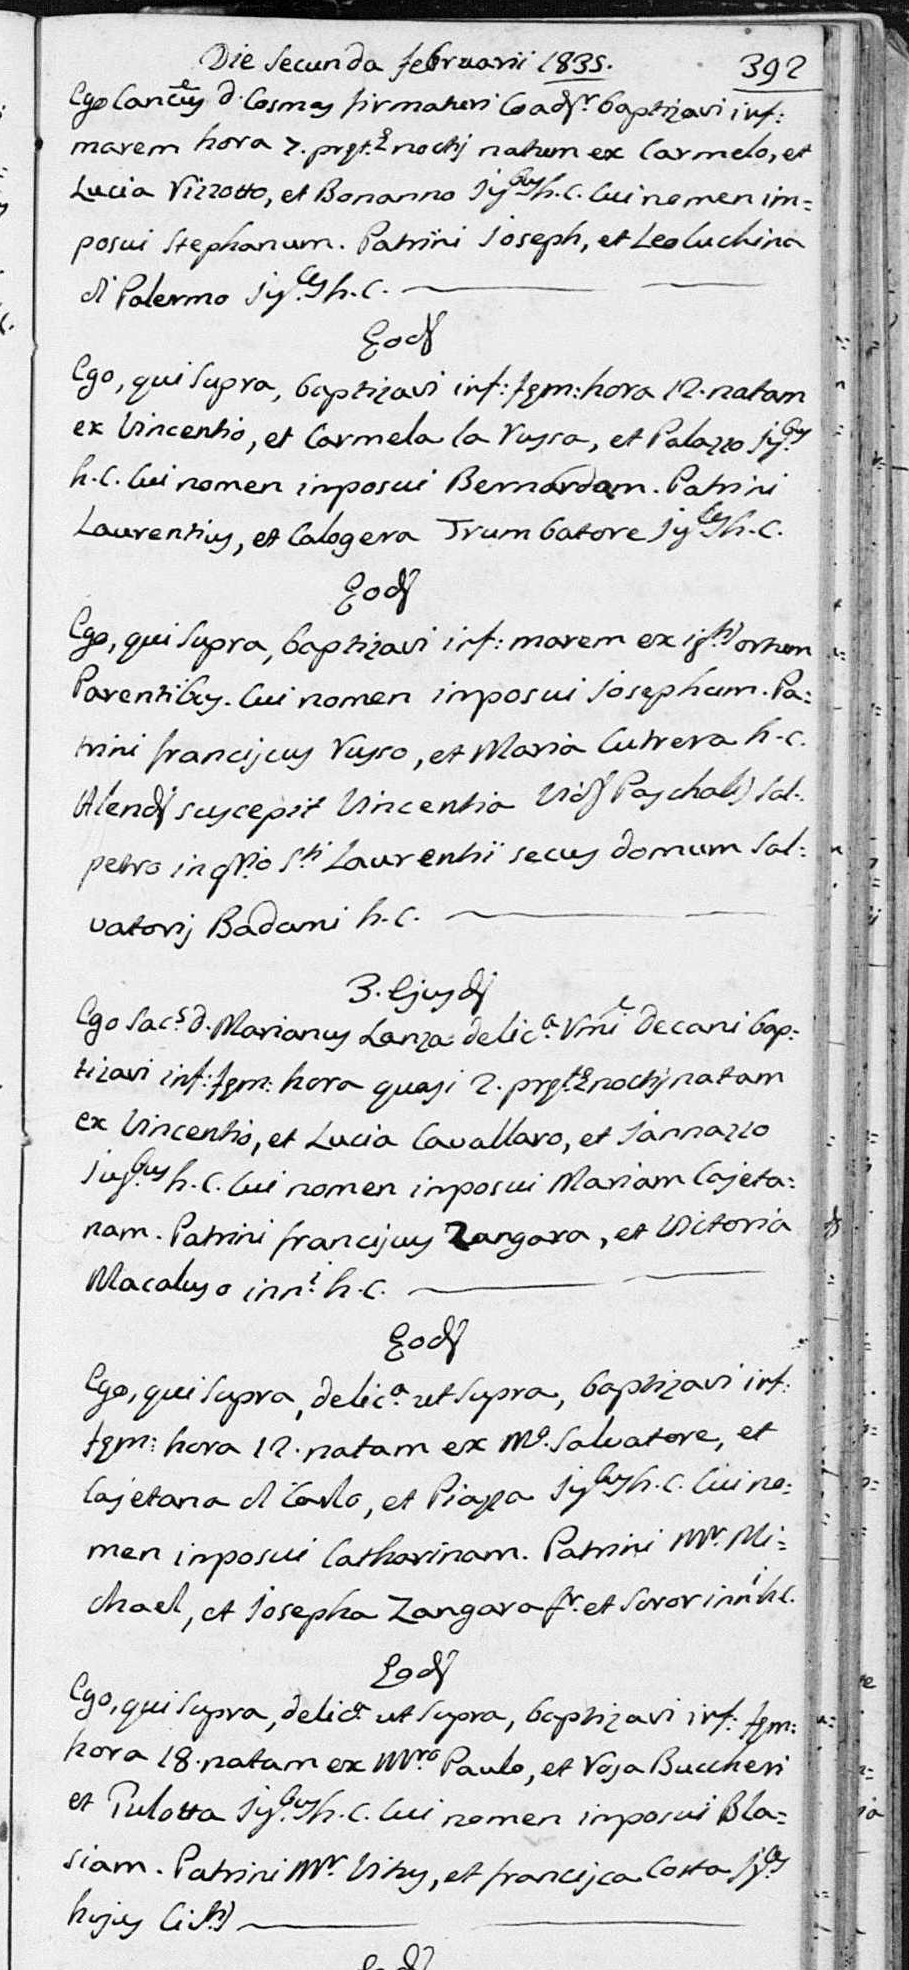 Die Secunda februarii 1835. 392
Ego Can.cus D. Cosmas firmaturi Coad.r baptizavi inf:
marem hora 7. pręt.ę noctis natum ex Carmelo, et
Lucia Vizzotto, et Bonanno Jug.bus h.C. Cui nomen im=
posui Stephanum. Patrini Joseph, et Leoluchina
di Palermo Jug.les h.C.
Eod
Ego, qui Supra, baptizavi inf: fęm: hora 12. natam
ex Vincentio, et Carmela la Russa, et Palazzo Jug.bus
h.C. Cui nomen imposui Bernardam. Patrini
Laurentius, et Calogera Trumbatore Jug.les h.C.
Eod
Ego, qui Supra, baptizavi inf: marem ex ig.tis ortum
Parentibus. Cui nomen imposui Josephum. Pa=
trini franciscus Russo, et Maria Cutrera h.C.
Alend suscepit Vincentia Vid Paschalis Sal=
petro in q.rio S.ti Laurentii secus domum Sal=
vatoris Badami h.C.
3. Ejusd
Ego Sac.s D. Marianus Lanza delic.a Vmi Decani bap=
tizavi inf: fęm: hora quasi 2. pręt.ę noctis natam
ex Vincentio, et Lucia Cavallaro, et Jannazzo
Jug.bus h.C. Cui nomen imposui Mariam Cajeta=
nam. Patrini franciscus Zangara, et Victoria
Macaluso inn.i h.C.
Eod
Ego, qui Supra, delic.a ut Supra, baptizavi inf:
fęm: hora 12. natam ex M.o Salvatore, et
Cajetana di Carlo, et Piazza Jug.bus h.C. Cui no=
men imposui Catharinam. Patrini M.r Mi=
chael, et Josepha Zangara fr. et Soror inn.i h.C.
Eod
Ego, qui Supra, delic.a ut Supra, baptizavi inf: fęm:
hora 18. natam ex M.ro Paulo, et Rosa Buccheri
et Pulotta Jug.bus h.C. Cui nomen imposui Bla=
siam. Patrini M.r Vitus, et francisca Costa Jug.les
hujus Civ.tis